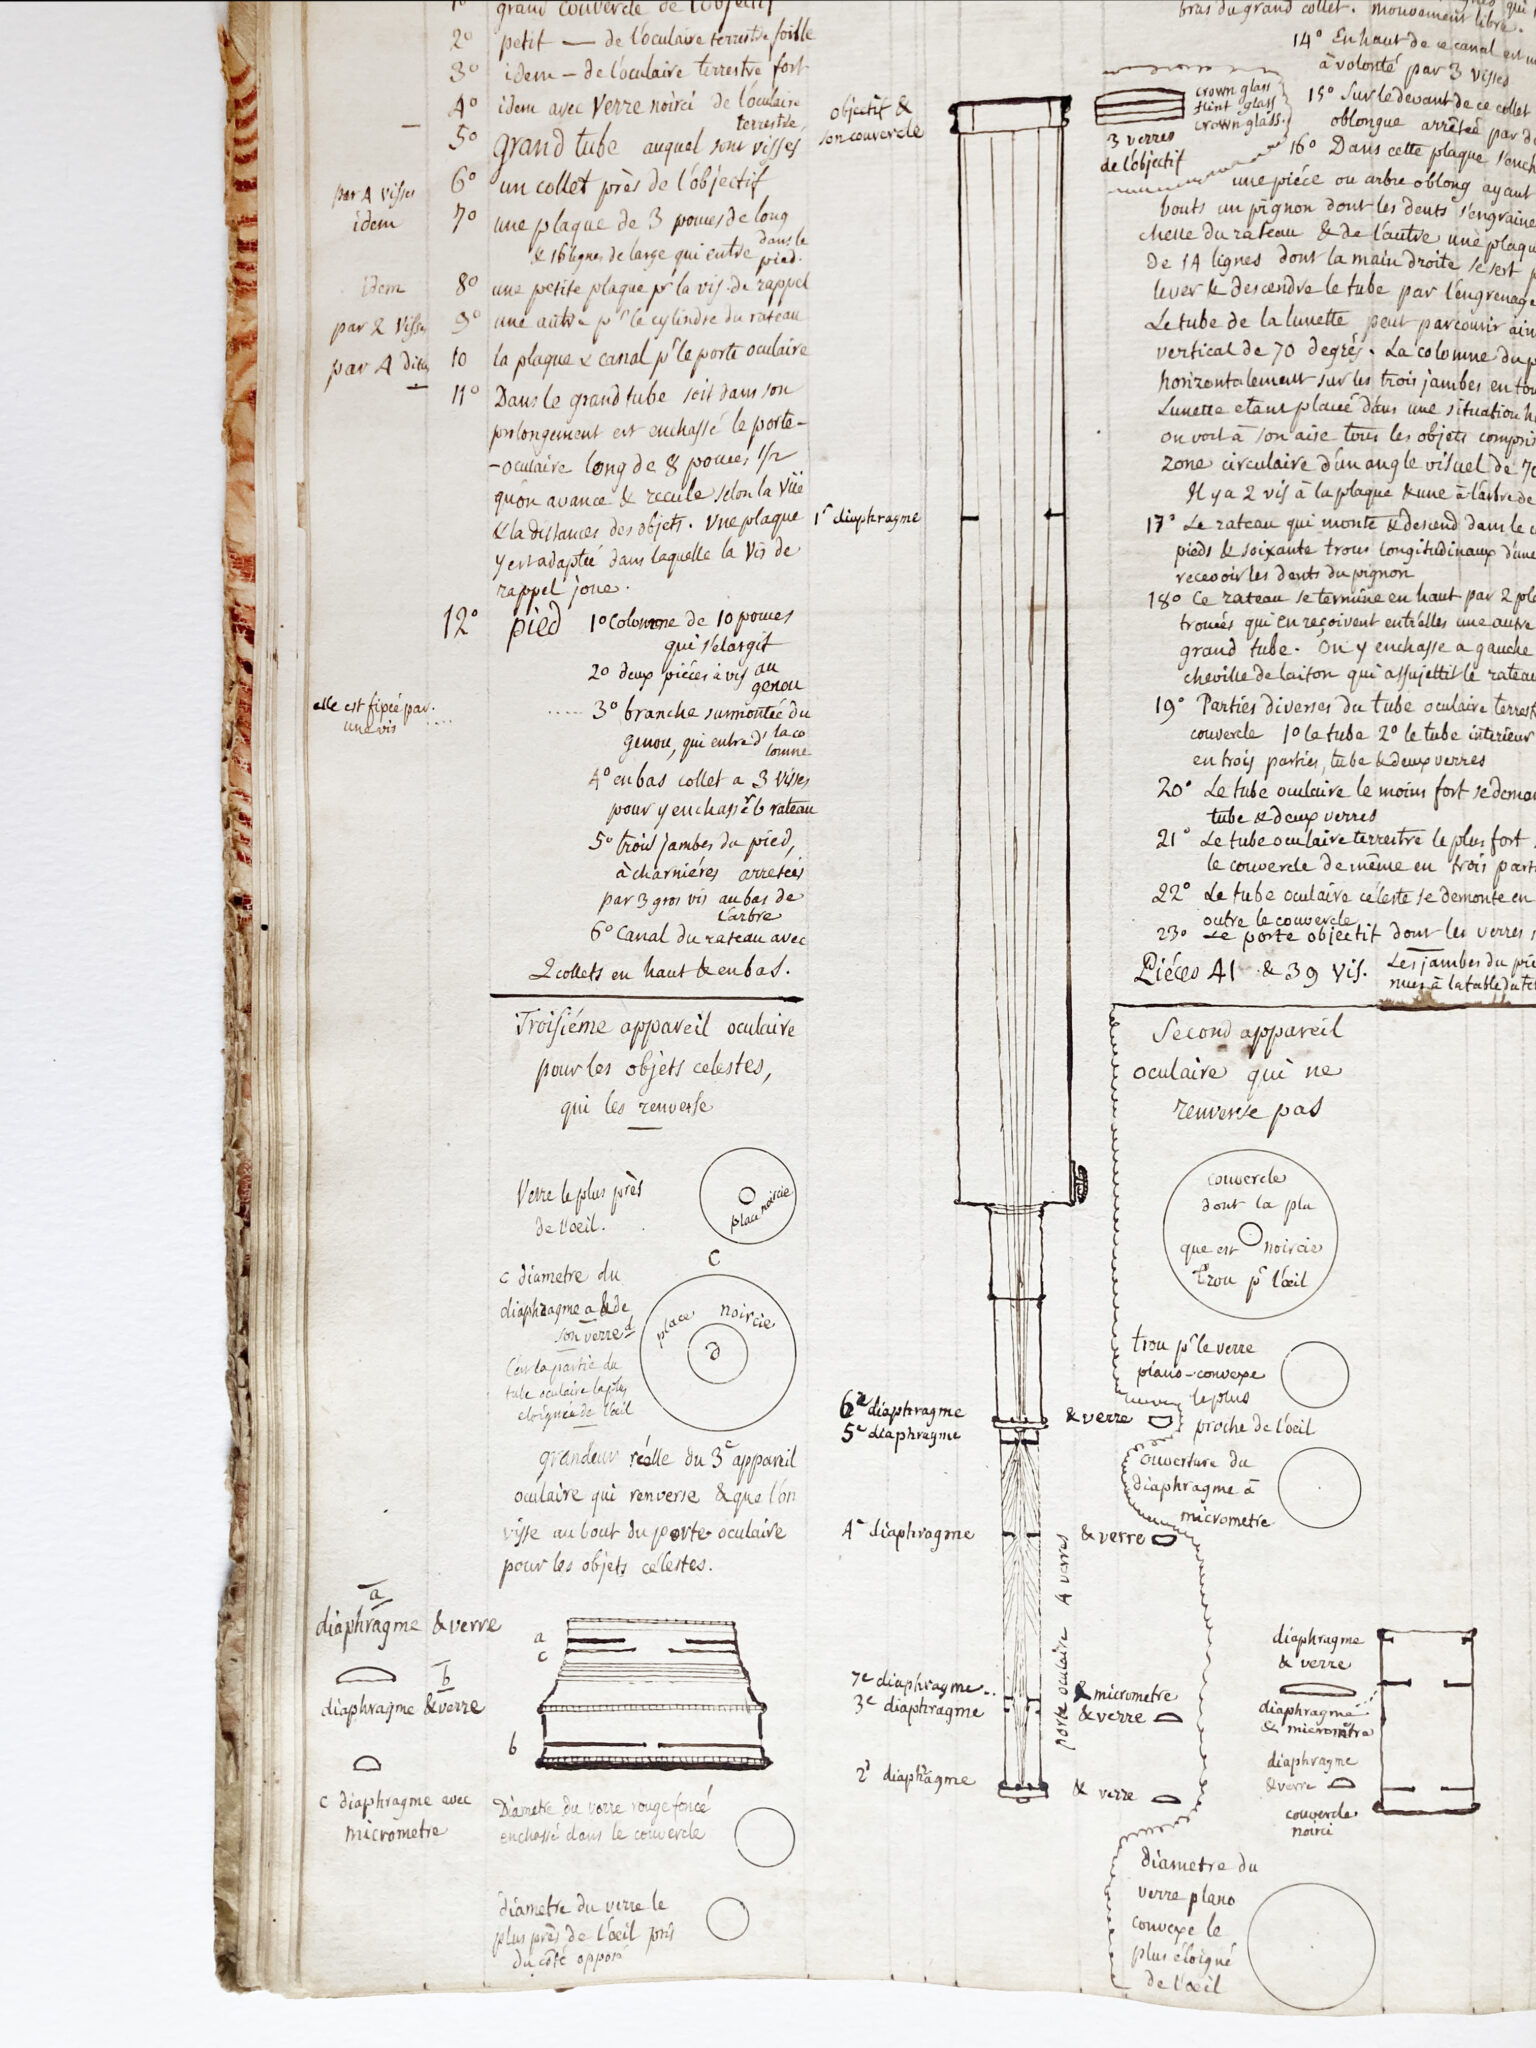 1º grand couvercle de l'objectif
2º petit — de l'oculaire terrestre foible
3º idem — de l'oculaire terrestre fort
4º idem avec verre noirci de l'oculaire
terrestre,
5º grand tube auquel sont vissés
par 4 visses 6º un collet près de l'objectif
idem 7º une plaque de 3 pouces de long
& 16 lignes de large qui entre dans le
pied.
idem 8º une petite plaque pr la vis de rappel
par 2 visses 9º une autre pr le cylindre du rateau
par 4 ditus 10 la plaque & canal pr le porte oculaire
11º Dans le grand tube soit dans son
prolongement est enchassé le porte-
-oculaire long de 8 pouces 1/2
qu'on avance & recule selon la vüe
& la distances des objets. Une plaque
y est adaptée dans laquelle la vis de
rappel joue.
12º pied 1º Colomne de 10 pouces
qui s'elargit
2º deux piéces à vis au
genou
elle est fixée par
une vis
3º branche surmontée du
genou, qui entre d' la co
lomne
4º en bas collet a 3 visses
pour y enchasser le rateau
5º trois jambes du pied,
à charniéres arretées
par 3 gros vis au bas de
l'arbre
6º Canal du rateau avec
2 collets en haut & en bas.
Troisiéme appareil oculaire
pour les objets celestes,
qui les renverse
Verre le plus près
de l'oeil.
noircie
C
c diametre du
diaphragme a & de
son verre d
place noircie
d
C'est la partie du
tube oculaire la plus
eloignée de l'oeil
grandeur réelle du 3e appareil
oculaire qui renverse & que l'on
visse au bout du porte oculaire
pour les objets celestes.
a
diaphragme & verre
b
diaphragme & verre
c diaphragme avec
micrometre
a
c
b
Diametre du verre rouge foncé
enchassé dans le couvercle
diametre du verre le
plus près de l'oeil pris
du côté opposé
objectif &
son couvercle
1r diaphragme
6e diaphragme & verre
5e diaphragme
4e diaphragme & verre
porte oculaire 4 verres
7e diaphragme & micrometre
3e diaphragme & verre
2d diaphragme & verre
crown glass
flint glass
crown glass.
3 verres
de l'objectif
bras du grand collet. mouvement libre.
14º En haut de ce canal est
à volonté par 3 visses
15º Sur le devant de ce collet
oblongue arrêtée par
16º Dans cette plaque
une piéce ou arbre oblong ayant
bouts un pignon dont les dents
chelle du rateau & de l'autre une plaqu
de 14 lignes dont la main droite se sert
lever & descendre le tube par l'engrenage
Le tube de la lunette peut parcourir
vertical de 70 degrés. La colomne du
horizontalement sur les trois jambes en
Lunette etant placée dans une situation
on voit à son aise tous les objets compris
zone circulaire d'un angle visuel de 70
Il y a 2 vis à la plaque & une à l'arbre de
17º Le rateau qui monte & descend dans le
pieds & soixante trous longitudinaux d'une
recevoir les dents du pignon
18º Ce rateau se termine en haut par 2
trouées qui en reçoivent entr'elles une autre
grand tube. On y enchasse a gauche
cheville de laiton qui assujettit le rateau
19º Parties diverses du tube oculaire
couvercle 1º le tube 2º le tube interieur
en trois parties, tube & deux verres
20º Le tube oculaire le moins fort se
tube & deux verres
21º Le tube oculaire terrestre le plus fort
le couvercle de même en trois
22º Le tube oculaire céleste se demonte en
outre le couvercle
23º Le porte objectif dont les verres
Piéces 41 & 39 vis. Les jambes du
Second appareil
oculaire qui ne
renverse pas
couvercle
dont la pla
que est noircie
trou pr l'œil
trou pr le verre
plano-convexe
le plus
proche de l'oeil
ouverture du
diaphragme à
micrometre
diaphragme
& verre
diaphragme
& micrometre
diaphragme
& verre
couvercle
noirci
diametre du
verre plano
convexe le
plus éloigné
de l'oeil